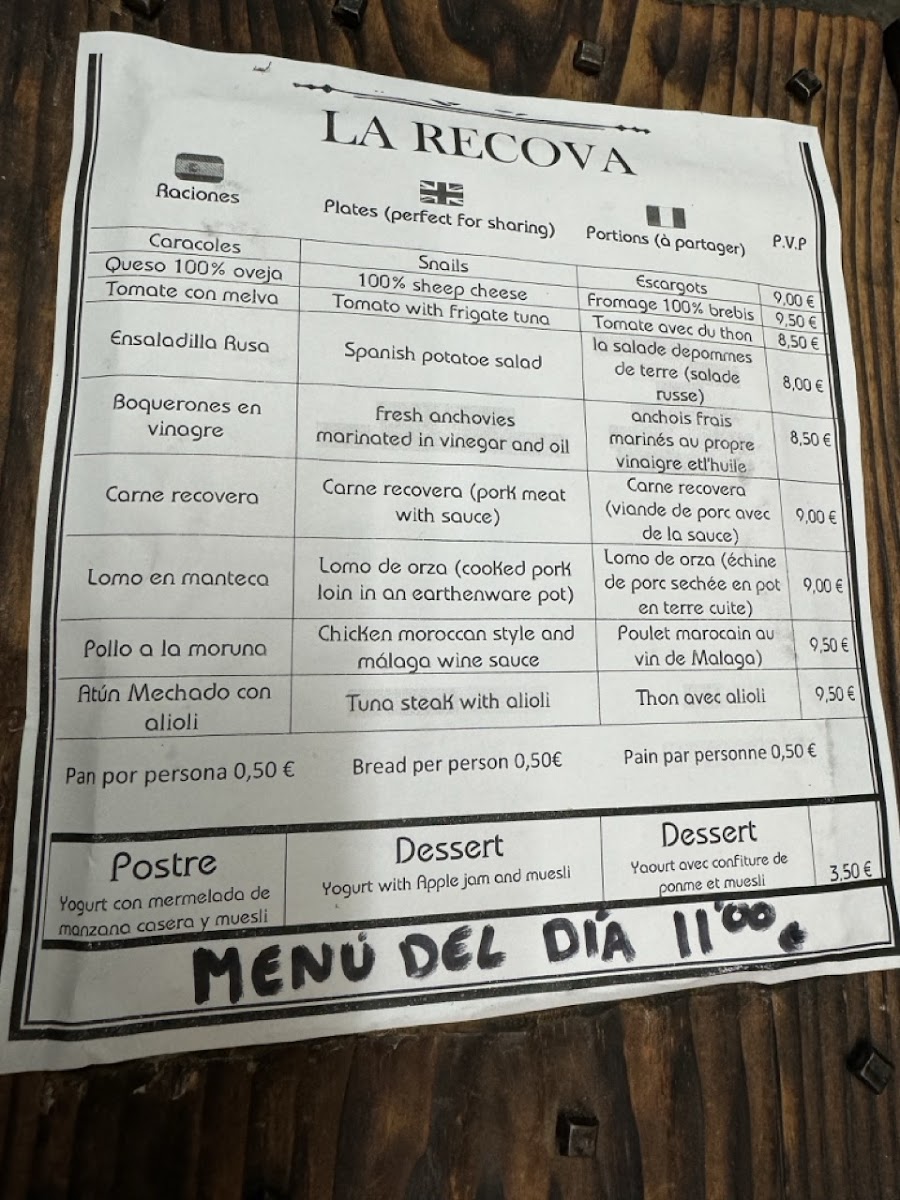 LA RECOVA
Raciones
Plates (perfect for sharing)
Portions (à partager)
P.V.P
Caracoles
Snails
Escargots
9,00 €
Queso 100% oveja
100% sheep cheese
Fromage 100% brebis
9,50 €
Tomate con melva
Tomato with frigate tuna
Tomate avec du thon
8,50 €
Ensaladilla Rusa
Spanish potatoe salad
la salade depommes
de terre (salade
russe)
8,00 €
Boquerones en
vinagre
Fresh anchovies
marinated in vinegar and oil
anchois frais
marinés au propre
vinaigre etl'huile
8,50 €
Carne recovera
Carne recovera (pork meat
with sauce)
Carne recovera
(viande de porc avec
de la sauce)
9,00 €
Lomo en manteca
Lomo de orza (cooked pork
loin in an earthenware pot)
Lomo de orza (échine
de porc sechée en pot
en terre cuite)
9,00 €
Pollo a la moruna
Chicken moroccan style and
málaga wine sauce
Poulet marocain au
vin de Malaga)
9,50 €
Atún Mechado con
alioli
Tuna steak with alioli
Thon avec alioli
9,50 €
Pan por persona 0,50 €
Bread per person 0,50€
Pain par personne 0,50 €
Postre
Yogurt con mermelada de
manzana casera y muesli
Dessert
Yogurt with Apple jam and muesli
Dessert
Yaourt avec confiture de
ponme et muesli
3,50 €
MENÚ DEL DÍA 11'00 €